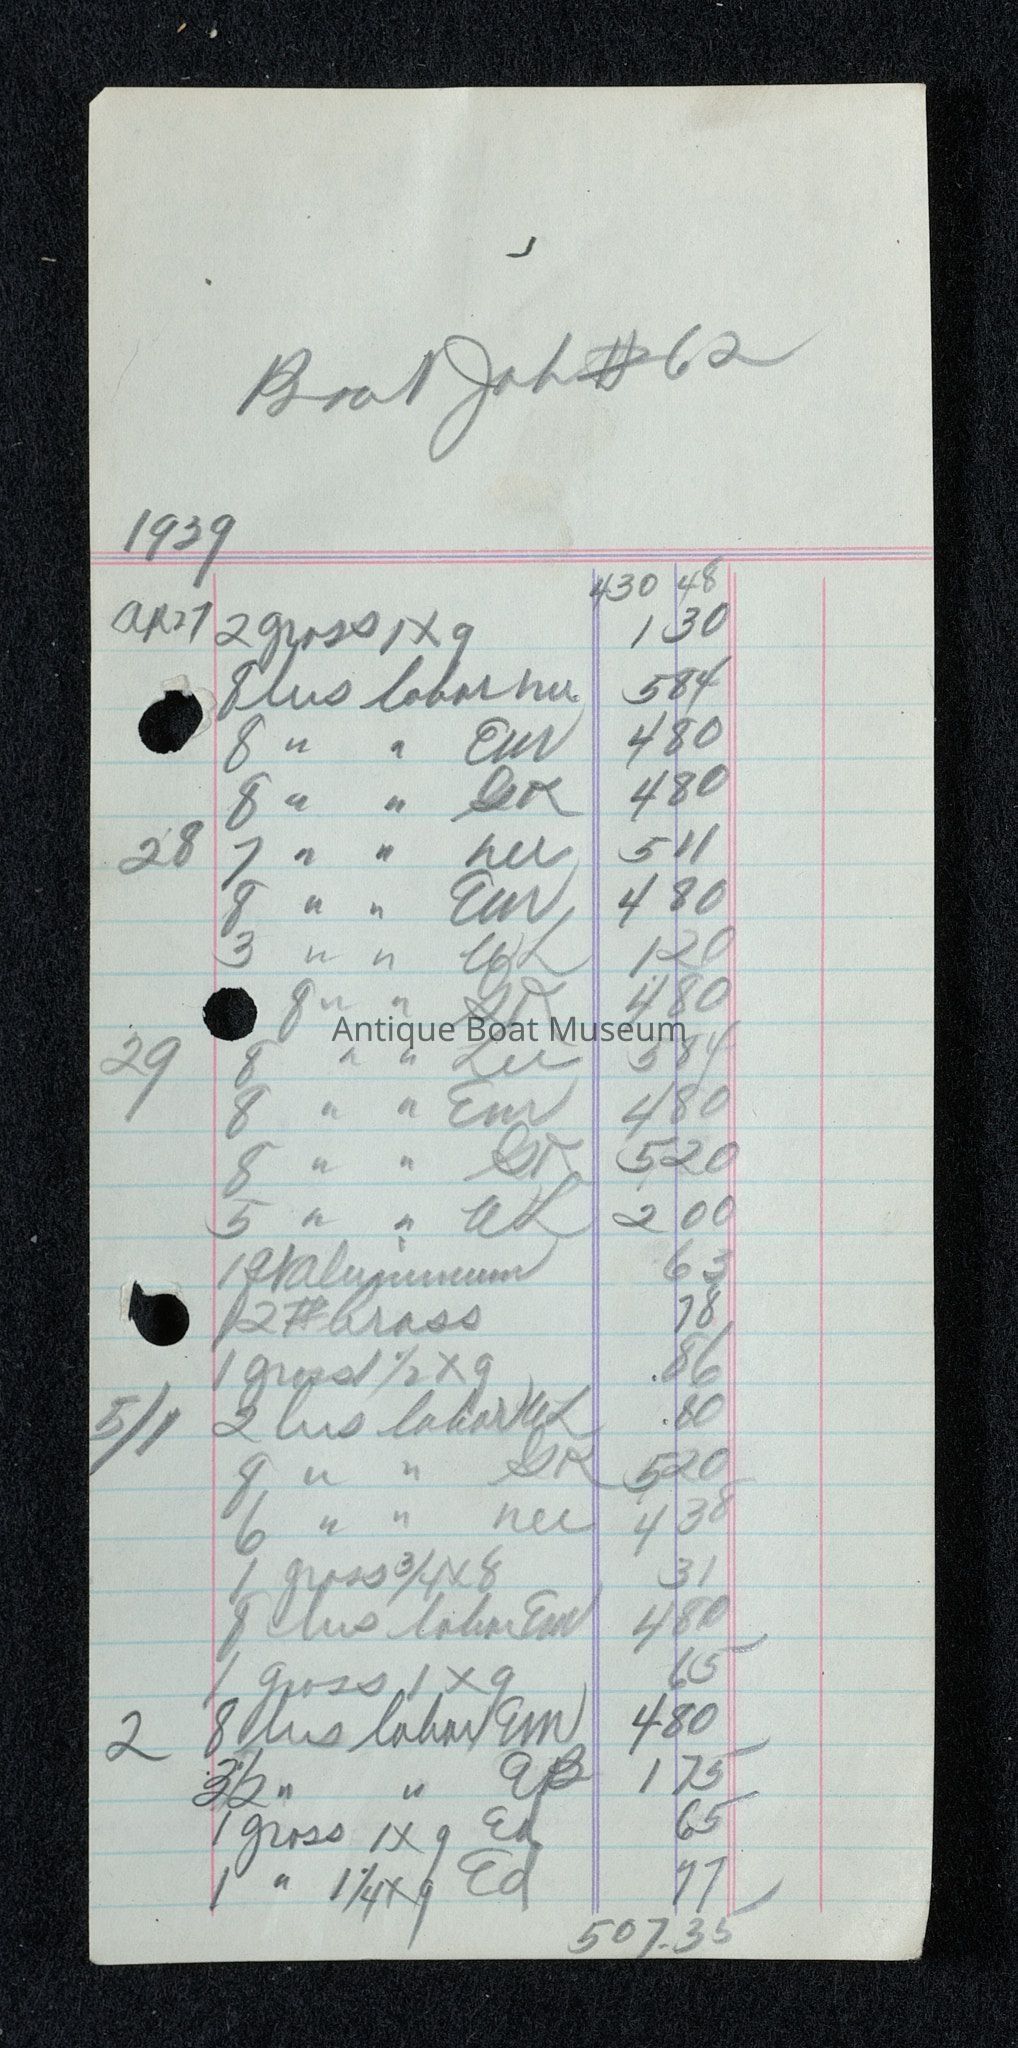 Boat Job #62
1939
430 48
Ap 27 2 gross 1 x 9 1 30
8 hrs labor 5 84
8 " " EW 4 80
8 " " GK 4 80
28 7 " " 5 11
8 " " EW 4 80
3 " " 1 20
8 " " GK 4 80
Antique Boat Museum
29 8 " " 5 84
8 " " EW 4 80
8 " " GK 5 20
5 " " AL 2 00
1 qt aluminum 63
12 # brass 78
1 gross 1 1/2 x 9 .86
5/1 2 hrs labor AL .80
8 " " GK 5 20
6 " " 4 38
1 gross 3/4 x 8 31
8 hrs labor EW 4 80
1 gross 1 x 9 65
2 8 hrs labor EW 4 80
3 1/2 " " EB 1 75
1 gross 1 x 9 Ed 65
1 " 1 1/4 x 9 Ed 77
507.35